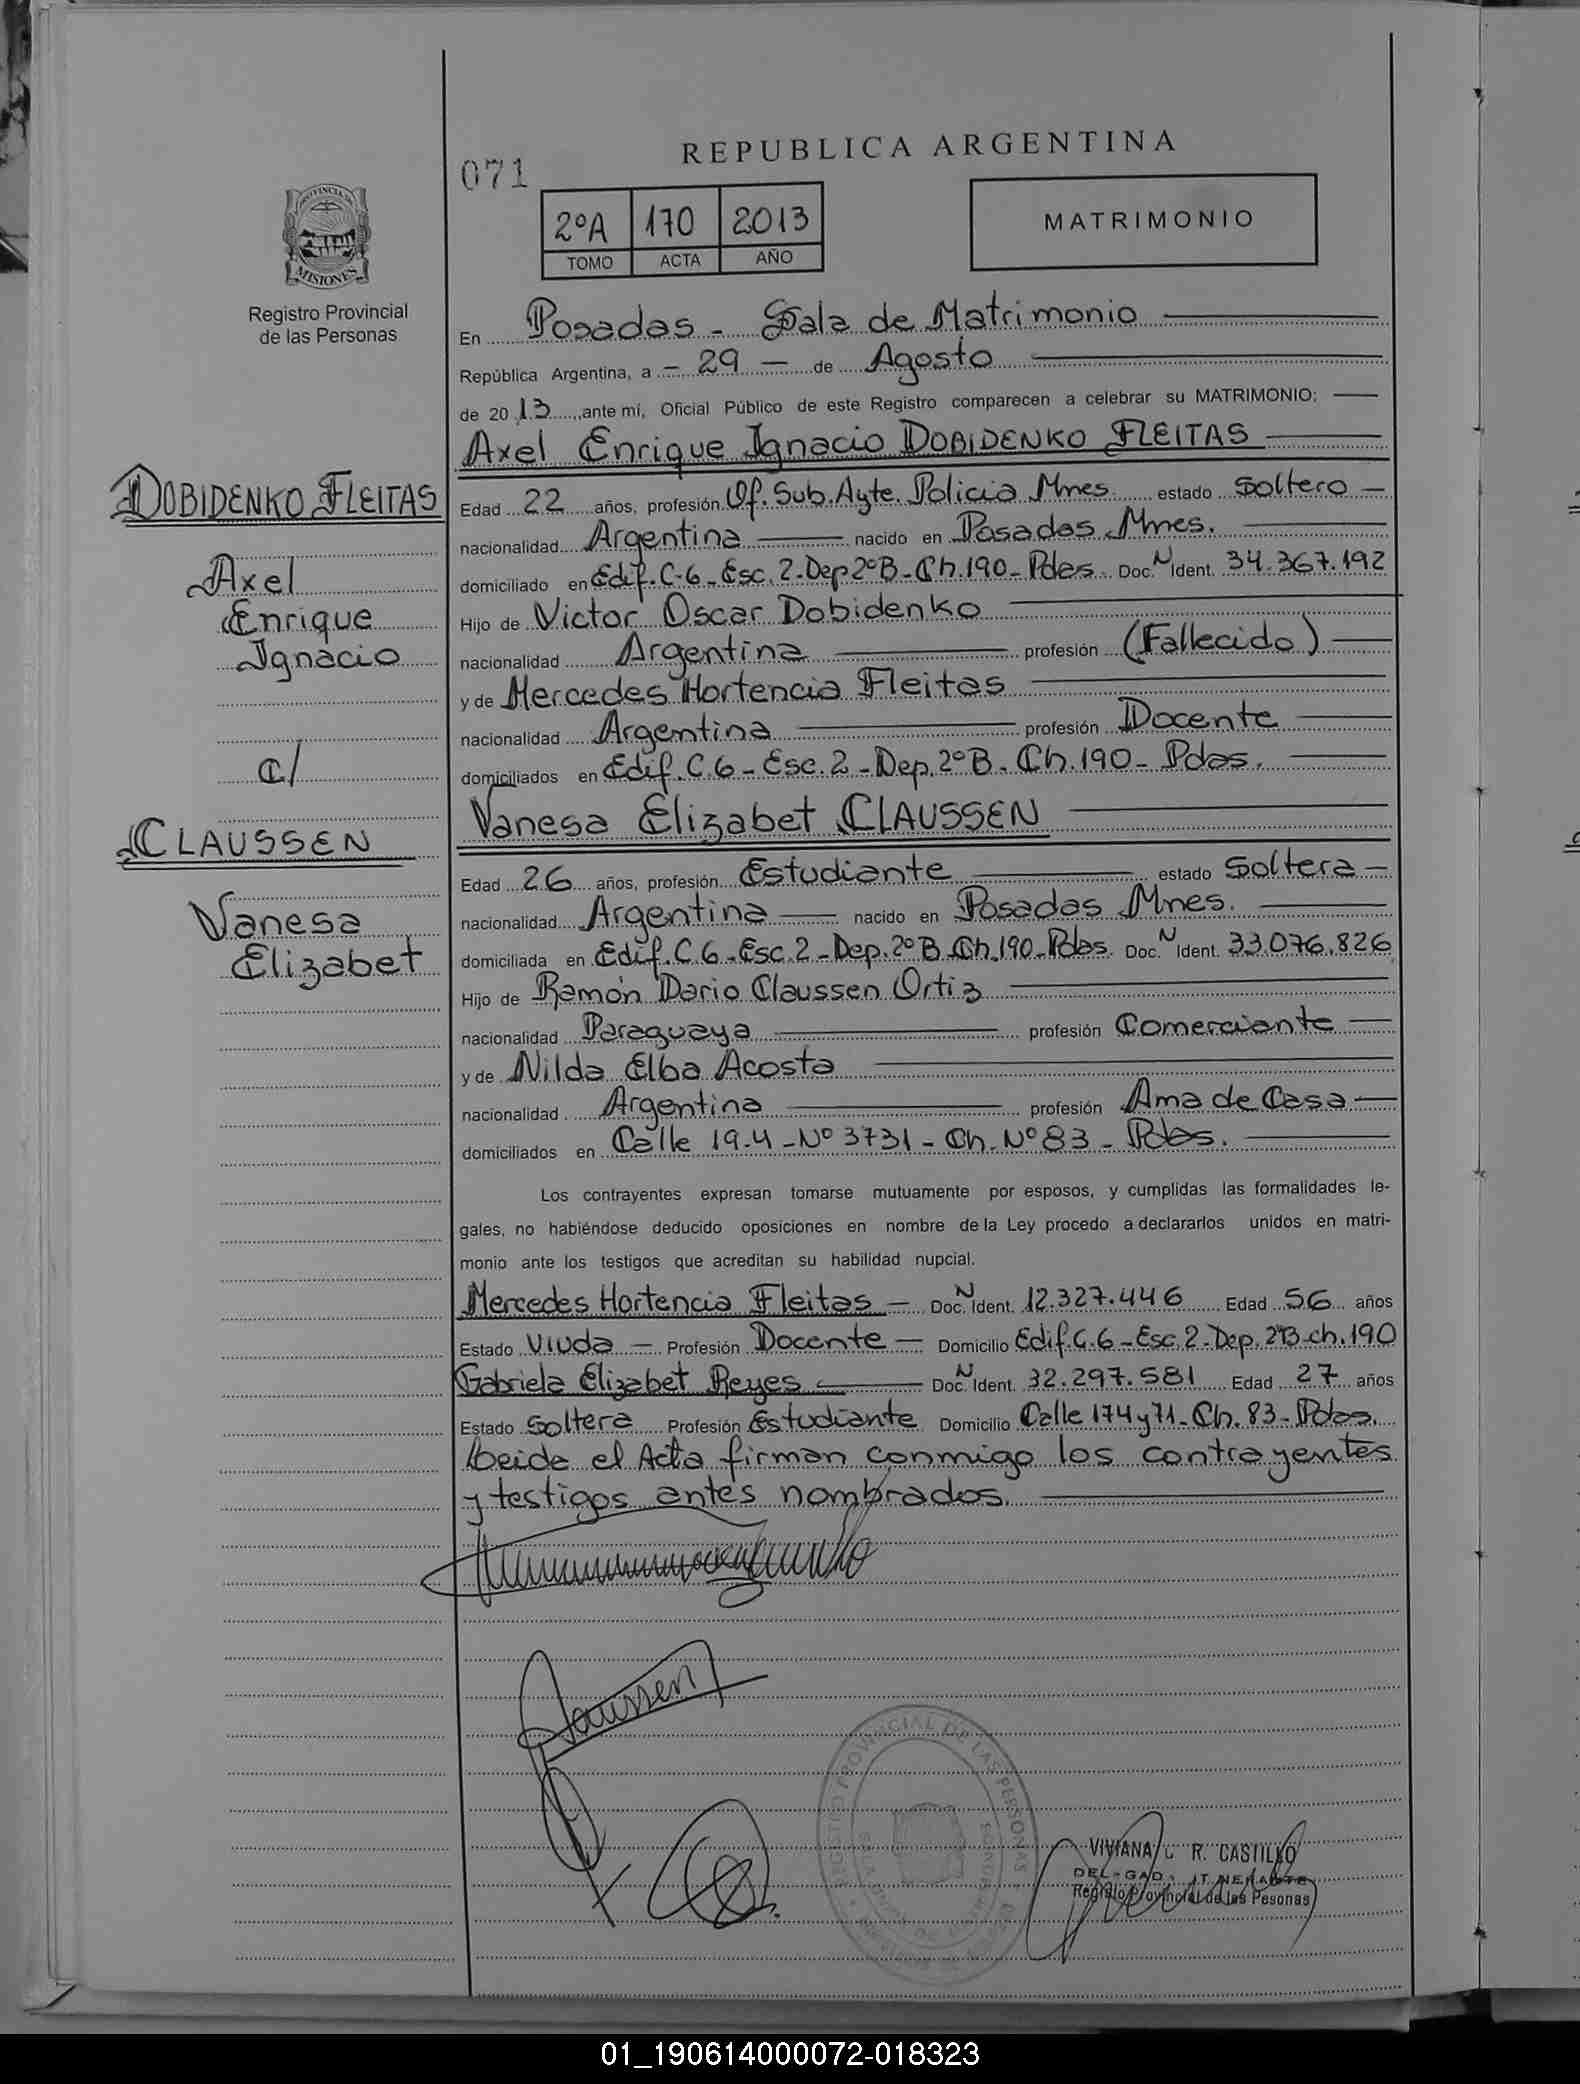 REPUBLICA ARGENTINA
071
2ºA 170 2013
TOMO ACTA AÑO
MATRIMONIO
PROVINCIA DE
MISIONES
Registro Provincial
de las Personas
En Posadas - Sala de Matrimonio
República Argentina, a - 29 - de Agosto
de 2013, ante mí, Oficial Público de este Registro comparecen a celebrar su MATRIMONIO:
Axel Enrique Ignacio DOBIDENKO FLEITAS
DOBIDENKO FLEITAS
Axel
Enrique
Ignacio
c/
CLAUSSEN
Vanesa
Elizabet
Edad 22 años, profesión Of. Sub. Ayte. Policia Mnes. estado Soltero -
nacionalidad Argentina nacido en Posadas Mnes.
domiciliado en Edif. C-6 - Esc. 2 - Dep 2º B - Ch. 190 - Pdas. Doc. N Ident. 34.367.192
Hijo de Victor Oscar Dobidenko
nacionalidad Argentina profesión (Fallecido)
y de Mercedes Hortencia Fleitas
nacionalidad Argentina profesión Docente
domiciliados en Edif. C. 6 - Esc. 2 - Dep. 2º B - Ch. 190 - Pdas.
Vanesa Elizabet CLAUSSEN
Edad 26 años, profesión Estudiante estado Soltera -
nacionalidad Argentina nacido en Posadas Mnes.
domiciliada en Edif. C. 6 - Esc. 2 - Dep. 2º B - Ch. 190 - Pdas. Doc. N Ident. 33.076.826
Hijo de Ramón Dario Claussen Ortiz
nacionalidad Paraguaya profesión Comerciante
y de Nilda Elba Acosta
nacionalidad Argentina profesión Ama de Casa
domiciliados en Calle 19-4 - Nº 3731 - Ch. Nº 83 - Pdas.
Los contrayentes expresan tomarse mutuamente por esposos, y cumplidas las formalidades le-
gales, no habiéndose deducido oposiciones en nombre de la Ley procedo a declararlos unidos en matri-
monio ante los testigos que acreditan su habilidad nupcial.
Mercedes Hortencia Fleitas - Doc. N Ident. 12.327.446 Edad 56 años
Estado Viuda - Profesión Docente - Domicilio Edif. C. 6 - Esc. 2 - Dep. 2ºB - ch. 190
Gabriela Elizabet Reyes Doc. N Ident. 32.297.581 Edad 27 años
Estado Soltera Profesión Estudiante Domicilio Calle 174 y 71 - Ch. 83 - Pdas.
Leida el Acta firman conmigo los contrayentes
y testigos antes nombrados.
Claussen
REGISTRO PROVINCIAL DE LAS PERSONAS
VIVIANA R. CASTILLO
DELEGADA ITINERANTE
Registro Provincial de las Pesonas
01_190614000072-018323